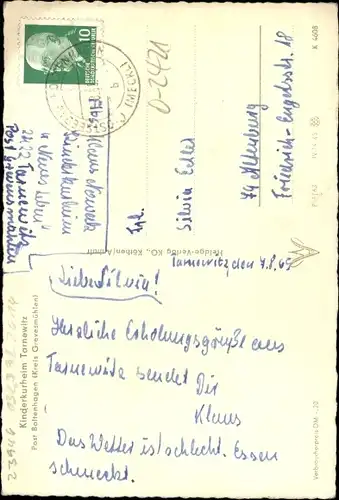 10
DEUTSCHE
0-2421
K 4608
Abs.:
Klaus
Kinderkurheim
2432 Tarnewitz
Post Grevesmühlen
Frl.
Silvia
74 Altenburg
Friedrich-Engelsstr. 18
Heldge-Verlag KG., Köthen/Anhalt
Kinderkurheim Tarnewitz
Post Boltenhagen (Kreis Grevesmühlen)
Tarnewitz den 7.8.65
Liebe Silvia!
Herzliche Erholungsgrüße aus
Tarnewitz sendet Dir
Klaus
Das Wetter ist schlecht. Essen
schmeckt.